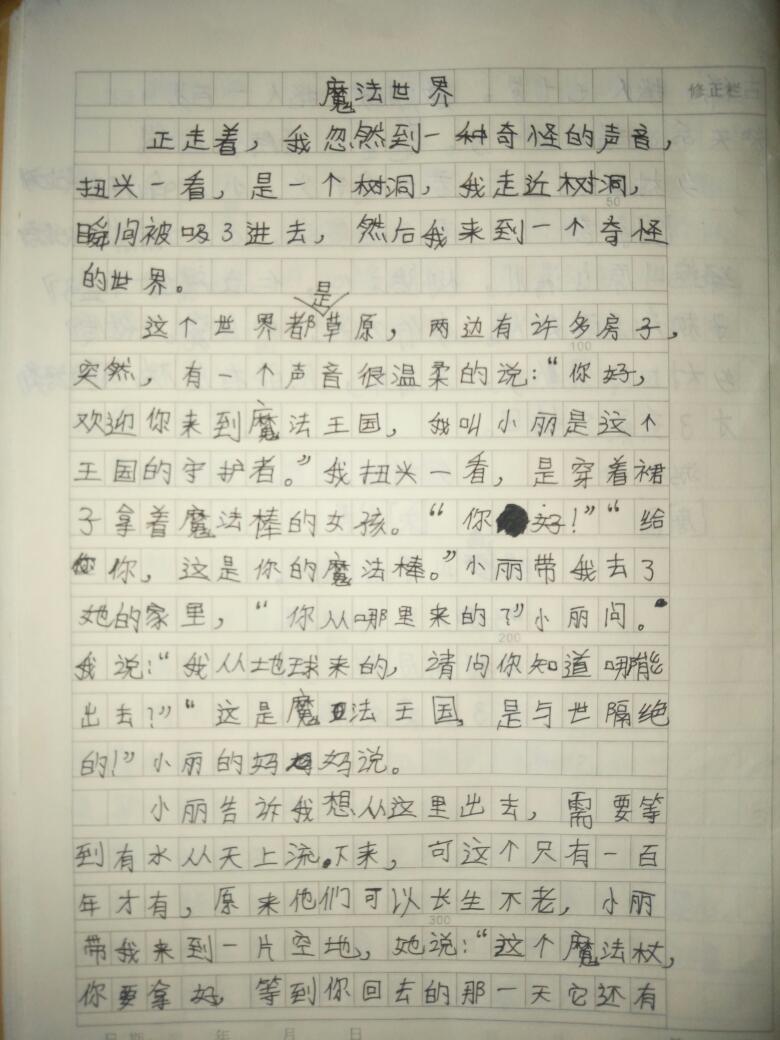 修正栏
魔法世界
正走着，我忽然到一种奇怪的声音，
扭头一看，是一个树洞，我走近树洞，
50
瞬间被吸了进去，然后我来到一个奇怪
的世界。
是
这个世界都草原，两边有许多房子，
100
突然，有一个声音很温柔的说：“你好，
欢迎你来到魔法王国，我叫小丽是这个
王国的守护者。”我扭头一看，是穿着裙
子拿着魔法棒的女孩。“你好！”“给
你，这是你的魔法棒。”小丽带我去了
她的家里，“你从哪里来的？”小丽问。
200
我说：“我从地球来的，请问你知道哪能
出去？”“这是魔法王国，是与世隔绝
的！”小丽的妈妈说。
小丽告诉我想从这里出去，需要等
到有水从天上流下来，可这个只有一百
年才有，原来他们可以长生不老，小丽
300
带我来到一片空地，她说：“这个魔法杖，
你要拿好，等到你回去的那一天它还有
日期 年 月 日